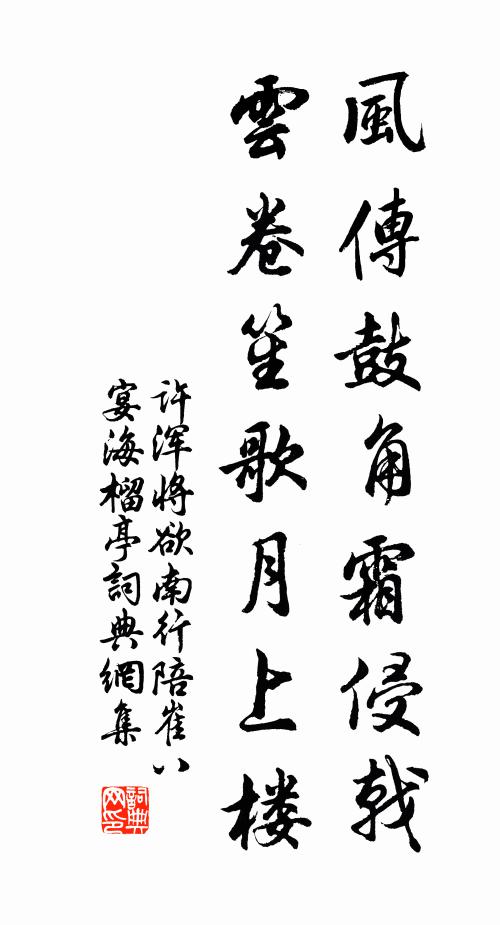 風傳鼓角霜侵戟
雲卷笙歌月上楼
许浑将欲南行陪崔八
宴海榴亭詞典網集
詞典
网印